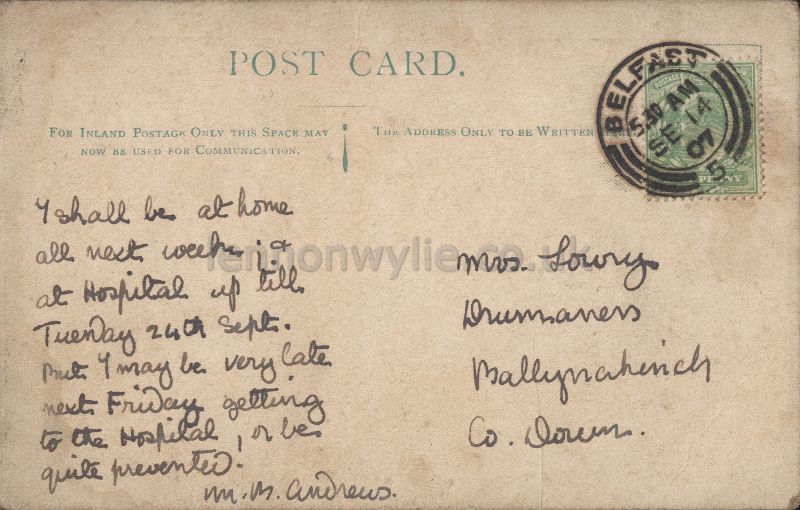 POST CARD.
FOR INLAND POSTAGE ONLY THIS SPACE MAY
NOW BE USED FOR COMMUNICATION.
THE ADDRESS ONLY TO BE WRITTEN
BELFAST
5.30 AM
SE 14
07
5
POSTAGE
PENNY
I shall be at home
all next week; &
at Hospital up till
Tuesday 24th Sept.
But I may be very late
next Friday getting
to the Hospital, or be
quite prevented.
M. B. Andrews.
Mrs. Lowry
Drumaness
Ballynahinch
Co. Down.
lennonwylie.co.uk